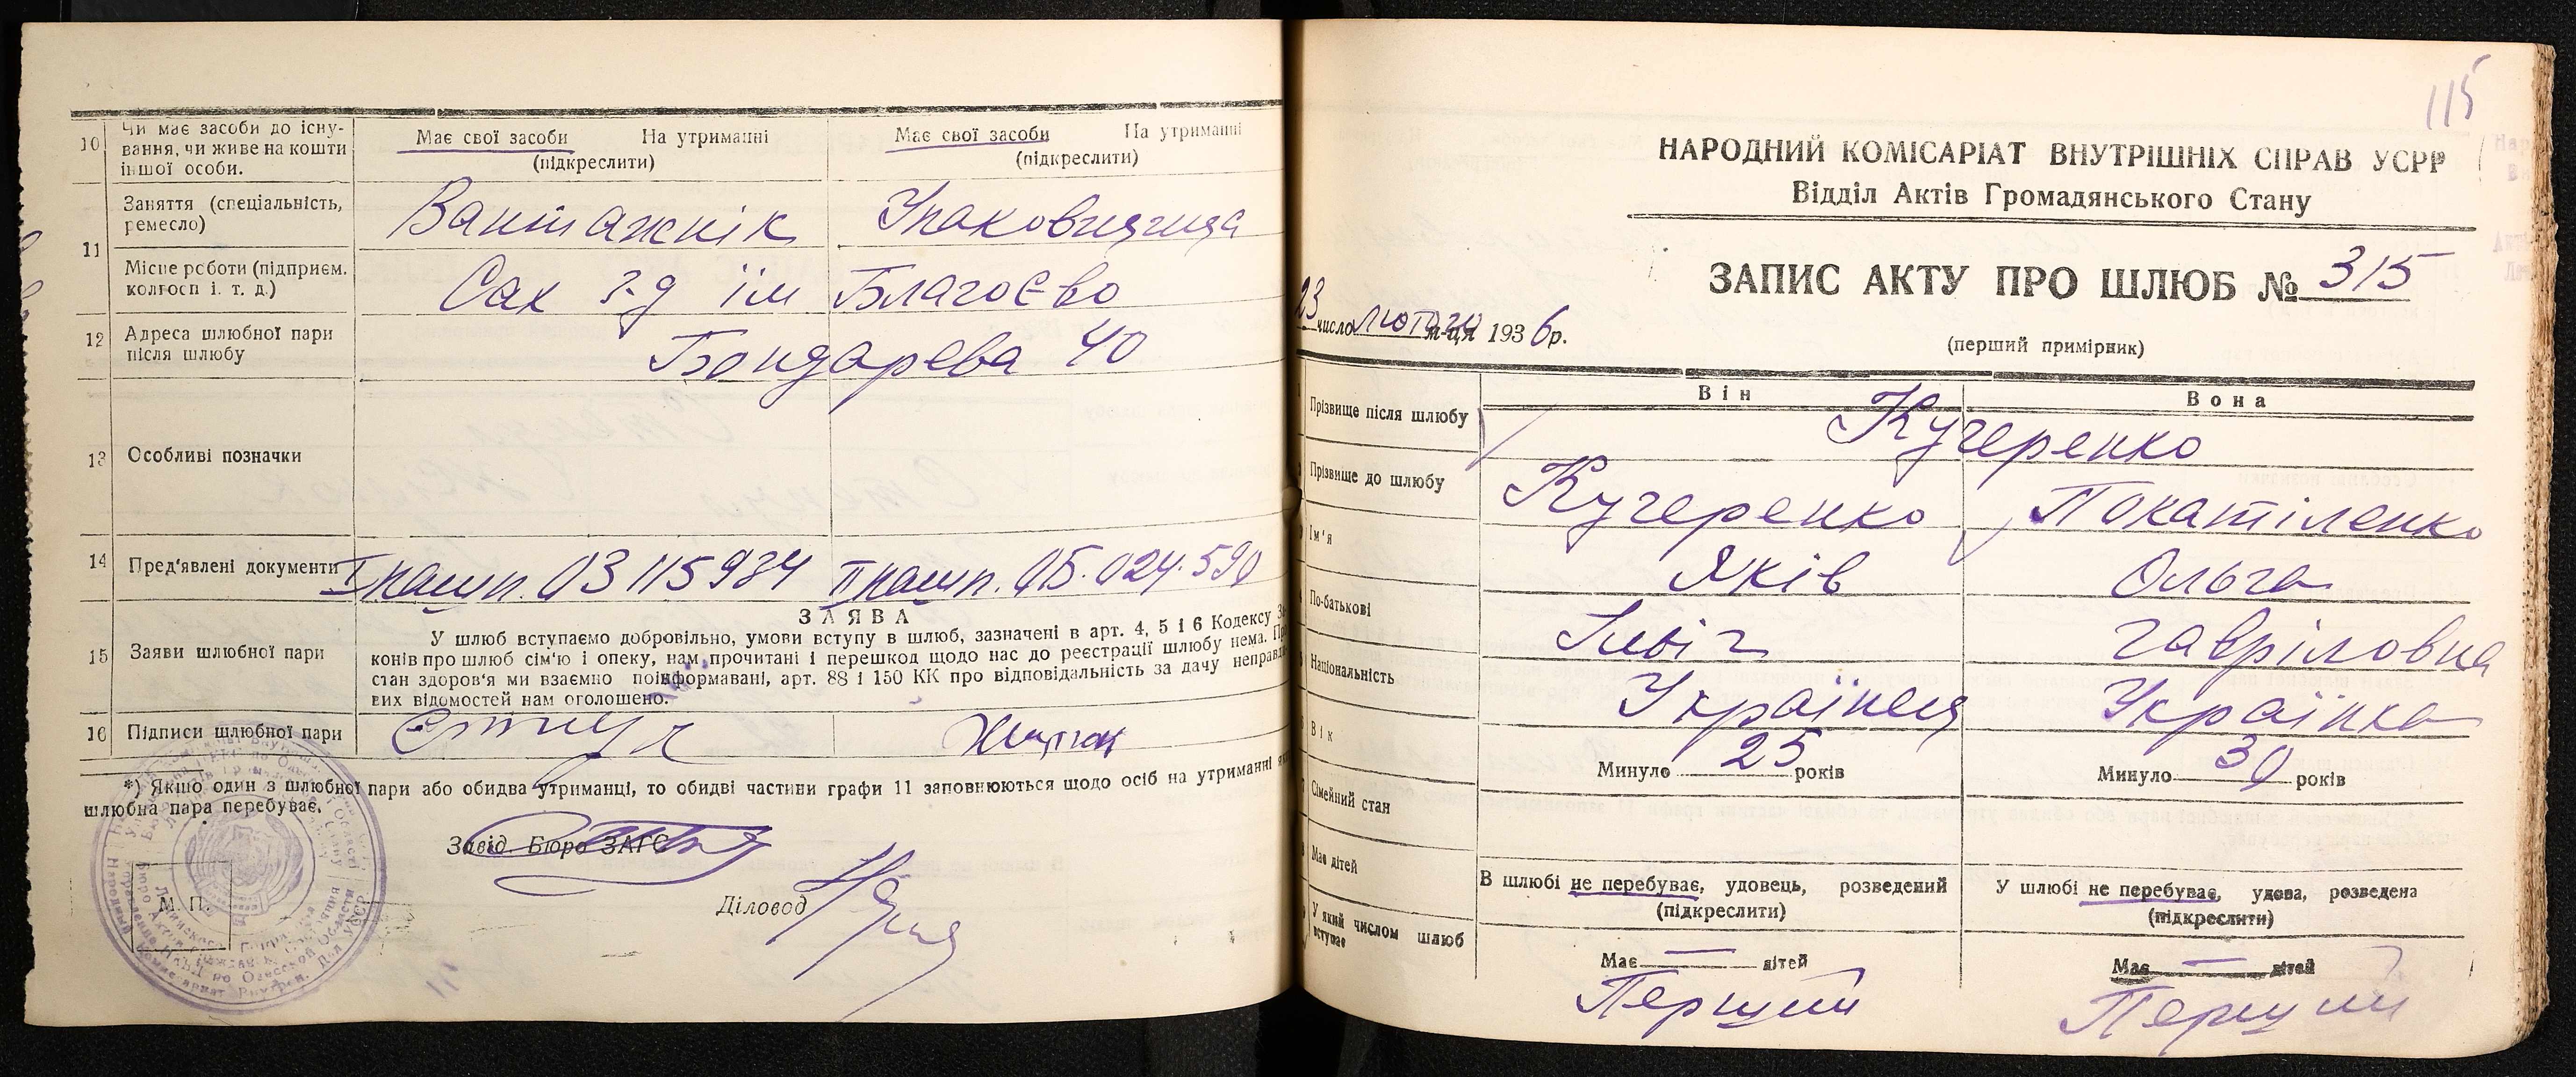 10 Чи має засоби до існу-
вання, чи живе на кошти
іншої особи.
Має свої засоби На утриманні
(підкреслити)
Має свої засоби На утриманні
(підкреслити)
11 Заняття (спеціальність,
ремесло)
Вантажнік
Упаковщица
Місце роботи (підприєм.
колгосп і. т. д.)
Сах з-д їм Благоєво
12 Адреса шлюбної пари
після шлюбу
Бондарева 40
13 Особливі позначки
14 Пред'явлені документи
I пашп. 03 115984 II пашп. 015.024.590
15 Заяви шлюбної пари
ЗАЯВА
У шлюб вступаємо добровільно, умови вступу в шлюб, зазначені в арт. 4, 5 і 6 Кодексу За-
конів про шлюб сім'ю і опеку, нам прочитані і перешкод щодо нас до реєстрації шлюбу нема. Пр
стан здоров'я ми взаємно поінформавані, арт. 88 і 150 КК про відповідальність за дачу неправди
вих відомостей нам оголошено.
16 Підписи шлюбної пари
*) Якшо один з шлюбної пари або обидва утриманці, то обидві частини графи 11 заповнюються щодо осіб на утриманні як
шлюбна пара перебуває.
Завід. Бюро ЗАГС
М. П.
Діловод
115
НАРОДНИЙ КОМІСАРІАТ ВНУТРІШНІХ СПРАВ УСРР
Відділ Актів Громадянського Стану
ЗАПИС АКТУ ПРО ШЛЮБ № 315
23 число лютого м-ця 1936р.
(перший примірник)
Він Вона
Прізвище після шлюбу
Кучеренко
Прізвище до шлюбу
Кучеренко Покатіленко
Ім'я
Яків Ольга
По-батькові
Ільіч Гавріловна
Національність
Українец Українка
Вік
Минуло 25 років
Минуло 30 років
Сімейний стан
В шлюбі не перебуває, удовець, розведений
(підкреслити)
У шлюбі не перебуває, удова, розведена
(підкреслити)
Має дітей
Має — дітей
Має — дітей
У який числом шлюб
вступає
Перший Перший